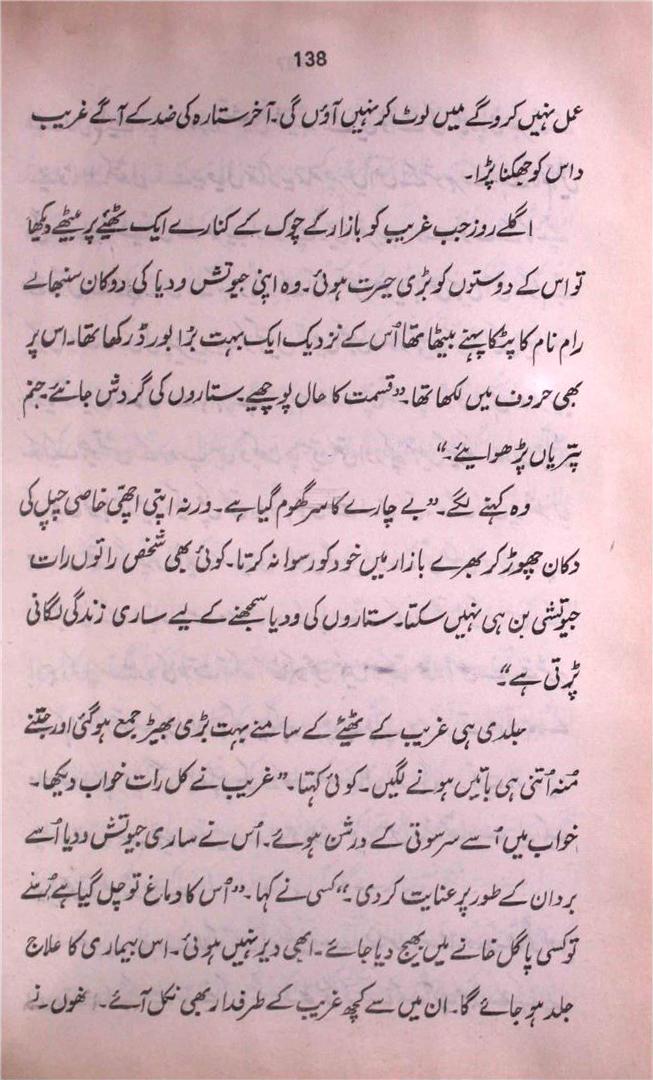 138
عمل نہیں کرو گے میں لوٹ کر نہیں آؤں گی۔ آخر ستارہ کی ضد کے آگے غریب
داس کو جھکنا پڑا۔
اگلے روز جب غریب کو بازار کے چوک کے کنارے ایک ٹھیّے پر بیٹھے دیکھا
تو اس کے دوستوں کو بڑی حیرت ہوئی۔ وہ اپنی جیوتش ودیا کی دوکان سنبھالے
رام نام کا پٹکا پہنے بیٹھا تھا اُس کے نزدیک ایک بہت بڑا بورڈ رکھا تھا۔ اس پر
بھی حروف میں لکھا تھا۔ ”قسمت کا حال پوچھیے۔ ستاروں کی گردش جانئے جنم
پتریاں پڑھوایئے۔“
وہ کہنے لگے۔ ”بے چارے کا سر گھوم گیا ہے۔ ورنہ اپنی اچھّی خاصی چپل کی
دکان چھوڑ کر بھرے بازار میں خود کو رسوا نہ کرتا۔ کوئی بھی شخص راتوں رات
جیوتشی بن ہی نہیں سکتا۔ ستاروں کی ودیا سمجھنے کے لیے ساری زندگی لگانی
پڑتی ہے“۔
جلدی ہی غریب کے ٹھیّے کے سامنے بہت بڑی بھیڑ جمع ہو گئی اور جتنے
مُنہ اُتنی ہی باتیں ہونے لگیں۔ کوئی کہتا۔ ”غریب نے کل رات خواب دیکھا۔
خواب میں اُسے سرسوتی کے درشن ہوئے۔ اُس نے ساری جیوتش ودیا اُسے
بردان کے طور پر عنایت کر دی۔“ کسی نے کہا۔ ”اُس کا دماغ تو چل گیا ہے
تو کسی پاگل خانے میں بھیج دیا جائے۔ ابھی دیر نہیں ہوئی۔ اس بیماری کا علاج
جلد ہو جائے گا۔ ان میں سے کچھ غریب کے طرفدار بھی نکل آئے۔ نھوں نے